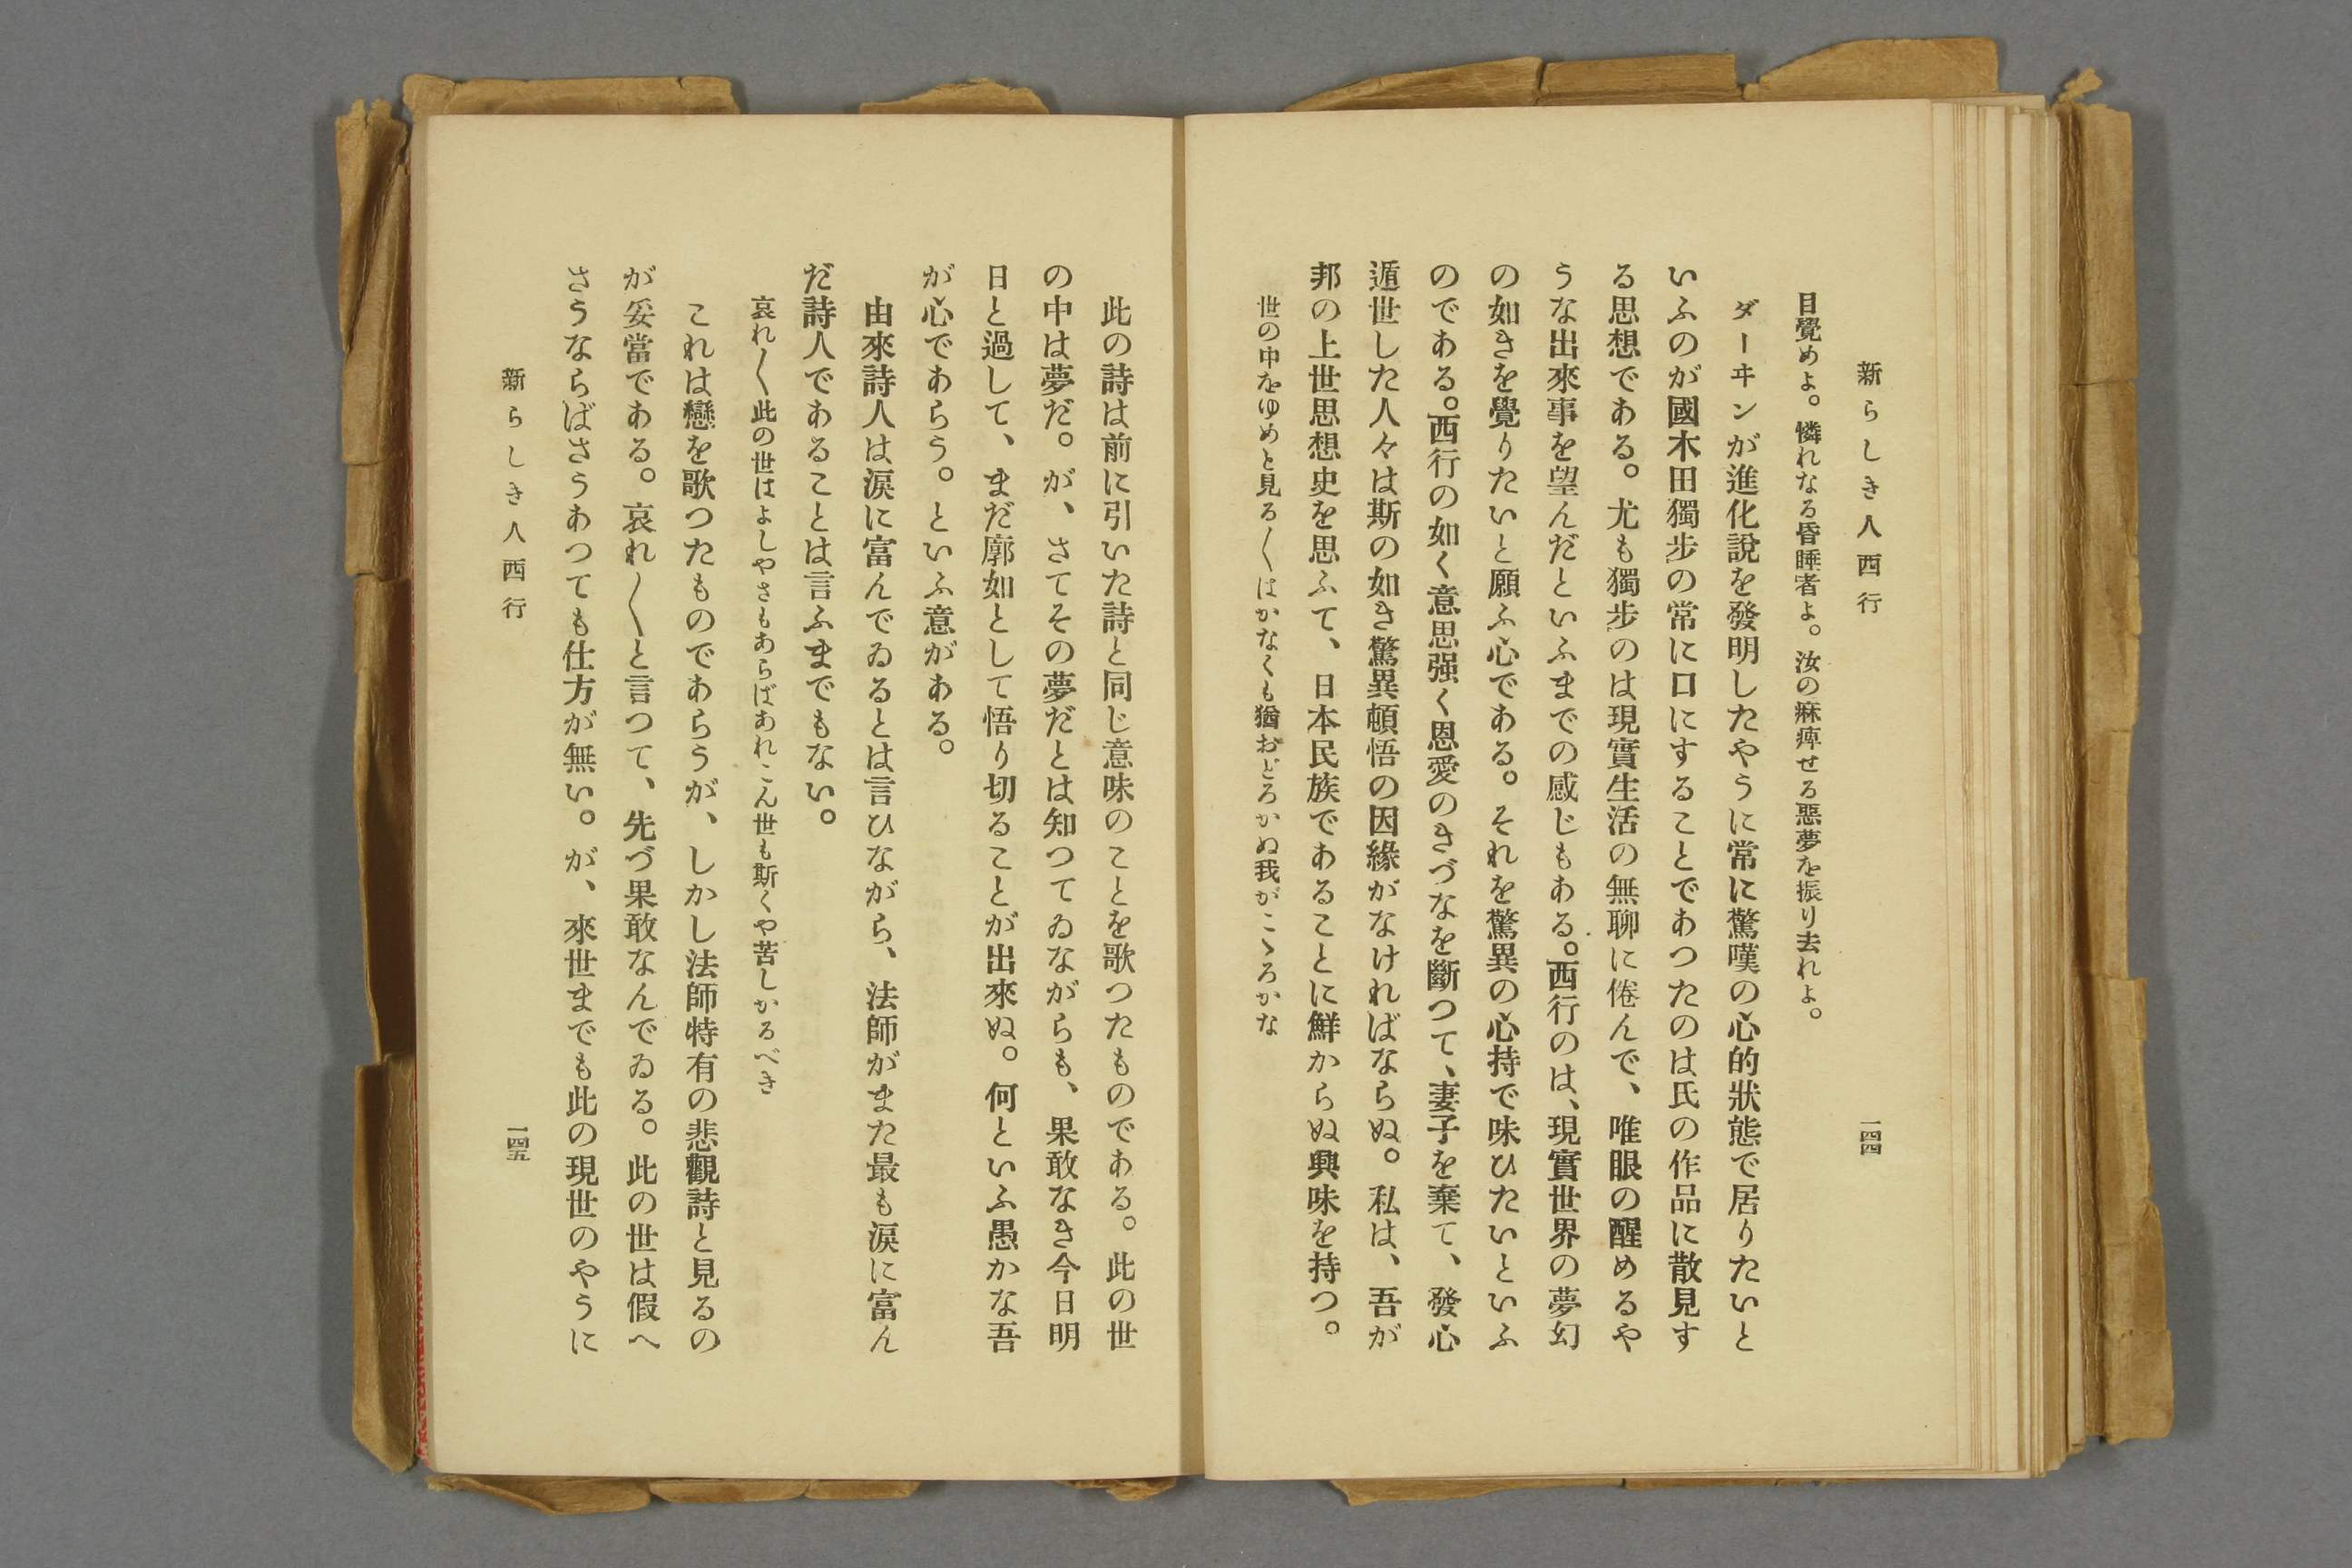 新らしき人西行
一四四
目覺めよ。憐れなる昏睡者よ。汝の麻痺せる惡夢を振り去れよ。
ダーヰンが進化說を發明したやうに常に驚嘆の心的狀態で居りたいと
いふのが國木田獨步の常に口にすることであつたのは氏の作品に散見す
る思想である。尤も獨步のは現實生活の無聊に倦んで、唯眼の醒めるや
うな出來事を望んだといふまでの感じもある。西行のは、現實世界の夢幻
の如きを覺りたいと願ふ心である。それを驚異の心持で味ひたいといふ
のである。西行の如く意思强く恩愛のきづなを斷つて、妻子を棄て、發心
遁世した人々は斯の如き驚異頓悟の因緣がなければならぬ。私は、吾が
邦の上世思想史を思ふて、日本民族であることに鮮からぬ興味を持つ。
世の中をゆめと見る〱はかなくも猶おどろかぬ我がこゝろかな
此の詩は前に引いた詩と同じ意味のことを歌つたものである。此の世
の中は夢だ。が、さてその夢だとは知つてゐながらも、果敢なき今日明
日と過して、まだ廓如として悟り切ることが出來ぬ。何といふ愚かな吾
が心であらう。といふ意がある。
由來詩人は淚に富んでゐるとは言ひながら、法師がまた最も淚に富ん
だ詩人であることは言ふまでもない。
哀れ〱此の世はよしやさもあらばあれこん世も斯くや苦しかるべき
これは戀を歌つたものであらうが、しかし法師特有の悲觀詩と見るの
が妥當である。哀れ〱と言つて、先づ果敢なんでゐる。此の世は假へ
さうならばさうあつても仕方が無い。が、來世までも此の現世のやうに
新らしき人西行
一四五